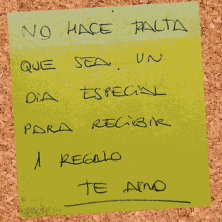 NO HACE FALTA
QUE SEA UN
DIA ESPECIAL
PARA RECIBIR
1 REGALO
TE AMO